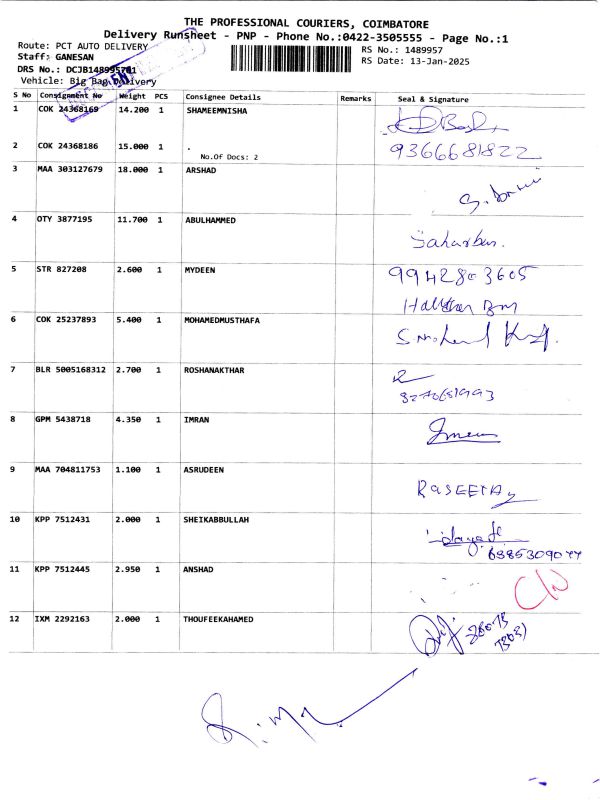 THE PROFESSIONAL COURIERS, COIMBATORE
Delivery Runsheet - PNP - Phone No.:0422-3505555 - Page No.:1
Route: PCT AUTO DELIVERY
RS No.: 1489957
Staff: GANESAN
RS Date: 13-Jan-2025
DRS No.:
Vehicle: Big Bag Delivery
S No Consignment No Weight PCS Consignee Details Remarks Seal & Signature
1 COK 24368169 14.200 1 SHAMEEMNISHA
2 COK 24368186 15.000 1 . 9366681822
No.Of Docs: 2
3 MAA 303127679 18.000 1 ARSHAD
4 OTY 3877195 11.700 1 ABULHAMMED
5 STR 827208 2.600 1 MYDEEN 9942803605
6 COK 25237893 5.400 1 MOHAMEDMUSTHAFA
7 BLR 5005168312 2.700 1 ROSHANAKTHAR
8 GPM 5438718 4.350 1 IMRAN
9 MAA 704811753 1.100 1 ASRUDEEN
10 KPP 7512431 2.000 1 SHEIKABBULLAH
11 KPP 7512445 2.950 1 ANSHAD
12 IXM 2292163 2.000 1 THOUFEEKAHAMED